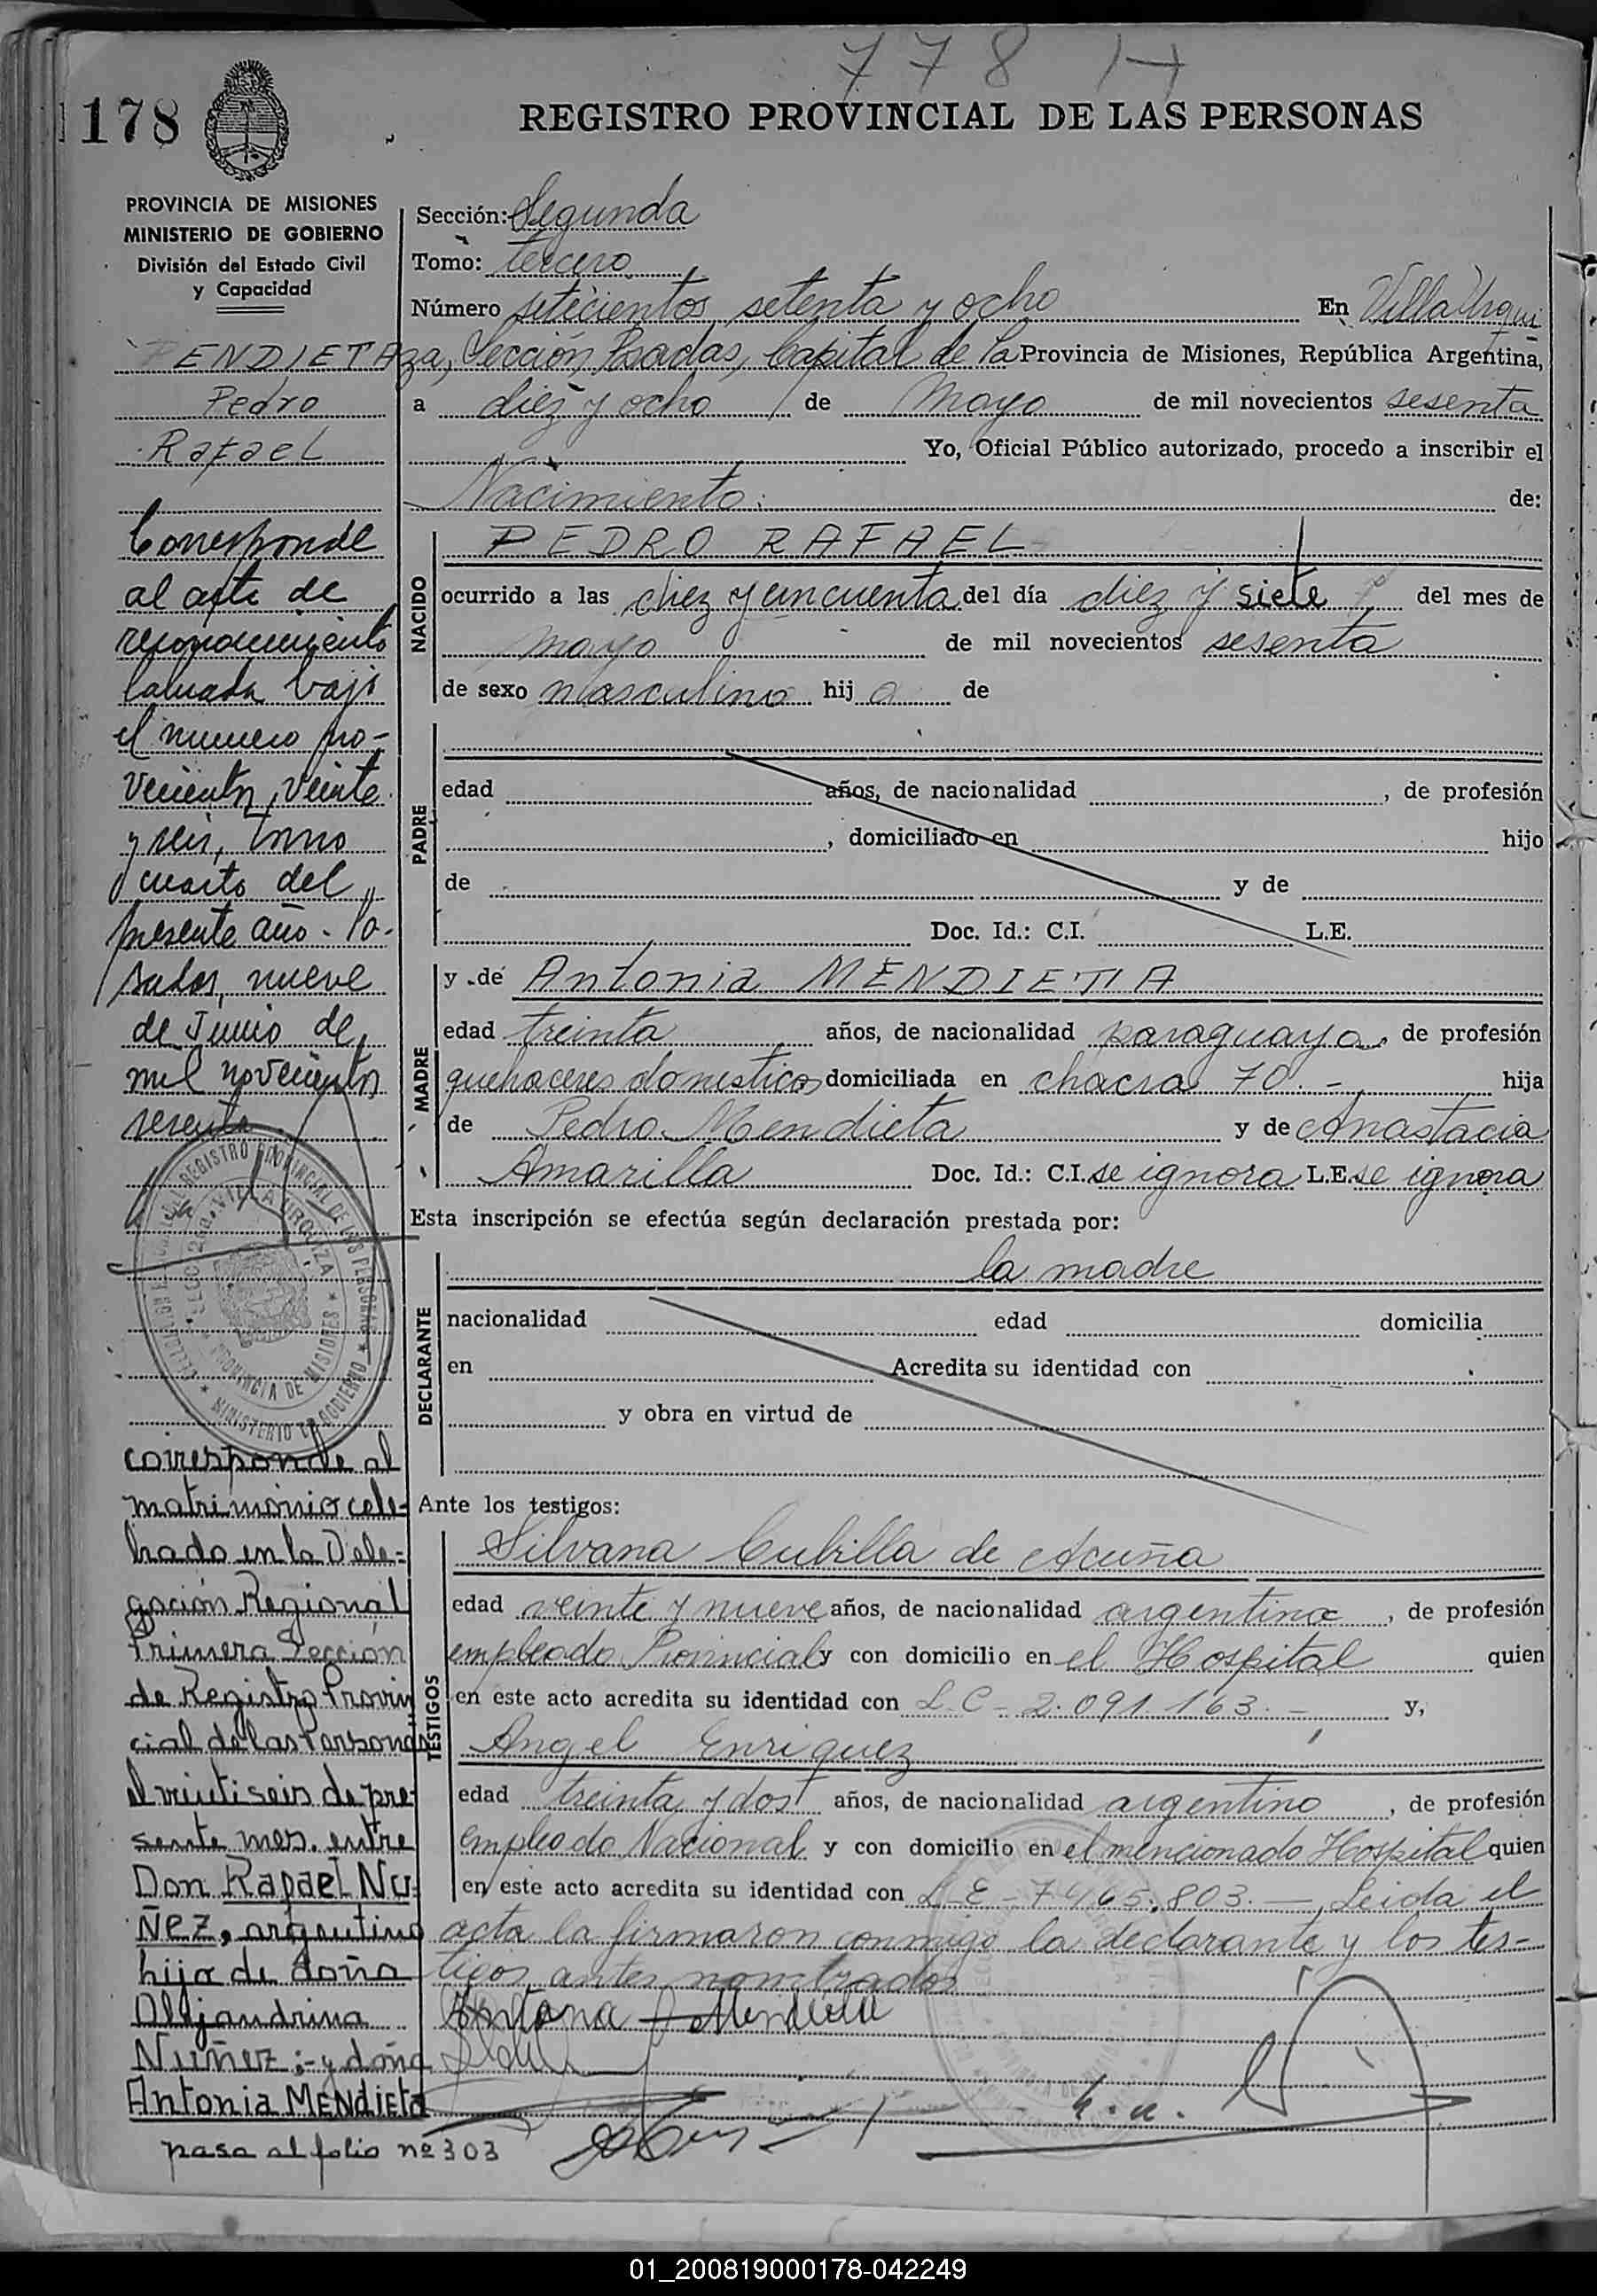 778 H
178
REGISTRO PROVINCIAL DE LAS PERSONAS
PROVINCIA DE MISIONES
MINISTERIO DE GOBIERNO
División del Estado Civil
y Capacidad
MENDIETA
Pedro
Rafael
Corresponde
al acta de
reconocimiento
labrada bajo
el numero no-
vecientos, veinte
y seis, tomo
cuarto del
presente año. Po-
sadas, nueve
de Junio de
mil novecientos
sesenta
corresponde al
matrimonio cele-
brado en la Dele-
gación Regional
Primera Sección
de Registro Provin
cial de las Personas
el veintiseis de pre-
sente mes. entre
Don Rafael Nu-
ñez, argentino
hijo de doña
Alejandrina
Nuñez;-y doña
Antonia MENDIETA
pasa al folio nº 303
Sección: Segunda
Tomo: tercero
Número setecientos setenta y ocho En Villa Urqui
za, Sección Posadas, Capital de la Provincia de Misiones, República Argentina,
a diez y ocho de Mayo de mil novecientos sesenta
Yo, Oficial Público autorizado, procedo a inscribir el
Nacimiento: de:
NACIDO
PEDRO RAFAEL
ocurrido a las diez y cincuenta del día diez y siete del mes de
mayo de mil novecientos sesenta
de sexo masculino hijo de
PADRE
edad años, de nacionalidad , de profesión
, domiciliado en hijo
de y de
Doc. Id.: C.I. L.E.
MADRE
y de Antonia MENDIETA
edad treinta años, de nacionalidad paraguaya, de profesión
quehaceres domesticos domiciliada en chacra 70.- hija
de Pedro Mendieta y de Anastacia
Amarilla Doc. Id.: C.I. se ignora L.E. se ignora
Esta inscripción se efectúa según declaración prestada por:
DECLARANTE
la madre
nacionalidad edad domicilia
en Acredita su identidad con
y obra en virtud de
Ante los testigos:
TESTIGOS
Silvana Cubilla de Acuña
edad veinte y nueve años, de nacionalidad argentina, de profesión
empleada Provincial y con domicilio en el Hospital quien
en este acto acredita su identidad con L.C - 2.091.163.- y,
Angel Enriquez
edad treinta y dos años, de nacionalidad argentino, de profesión
empleado Nacional y con domicilio en el mencionado Hospital quien
en este acto acredita su identidad con L-E-7465.803.- Leida el
acta la firmaron conmigo la declarante y los tes-
tigos antes nombrados
Antona Mendieta
REGISTRO PROVINCIAL DE LAS PERSONAS
VILLA URQUIZA
PROVINCIA DE MISIONES
MINISTERIO DE GOBIERNO
01_200819000178-042249